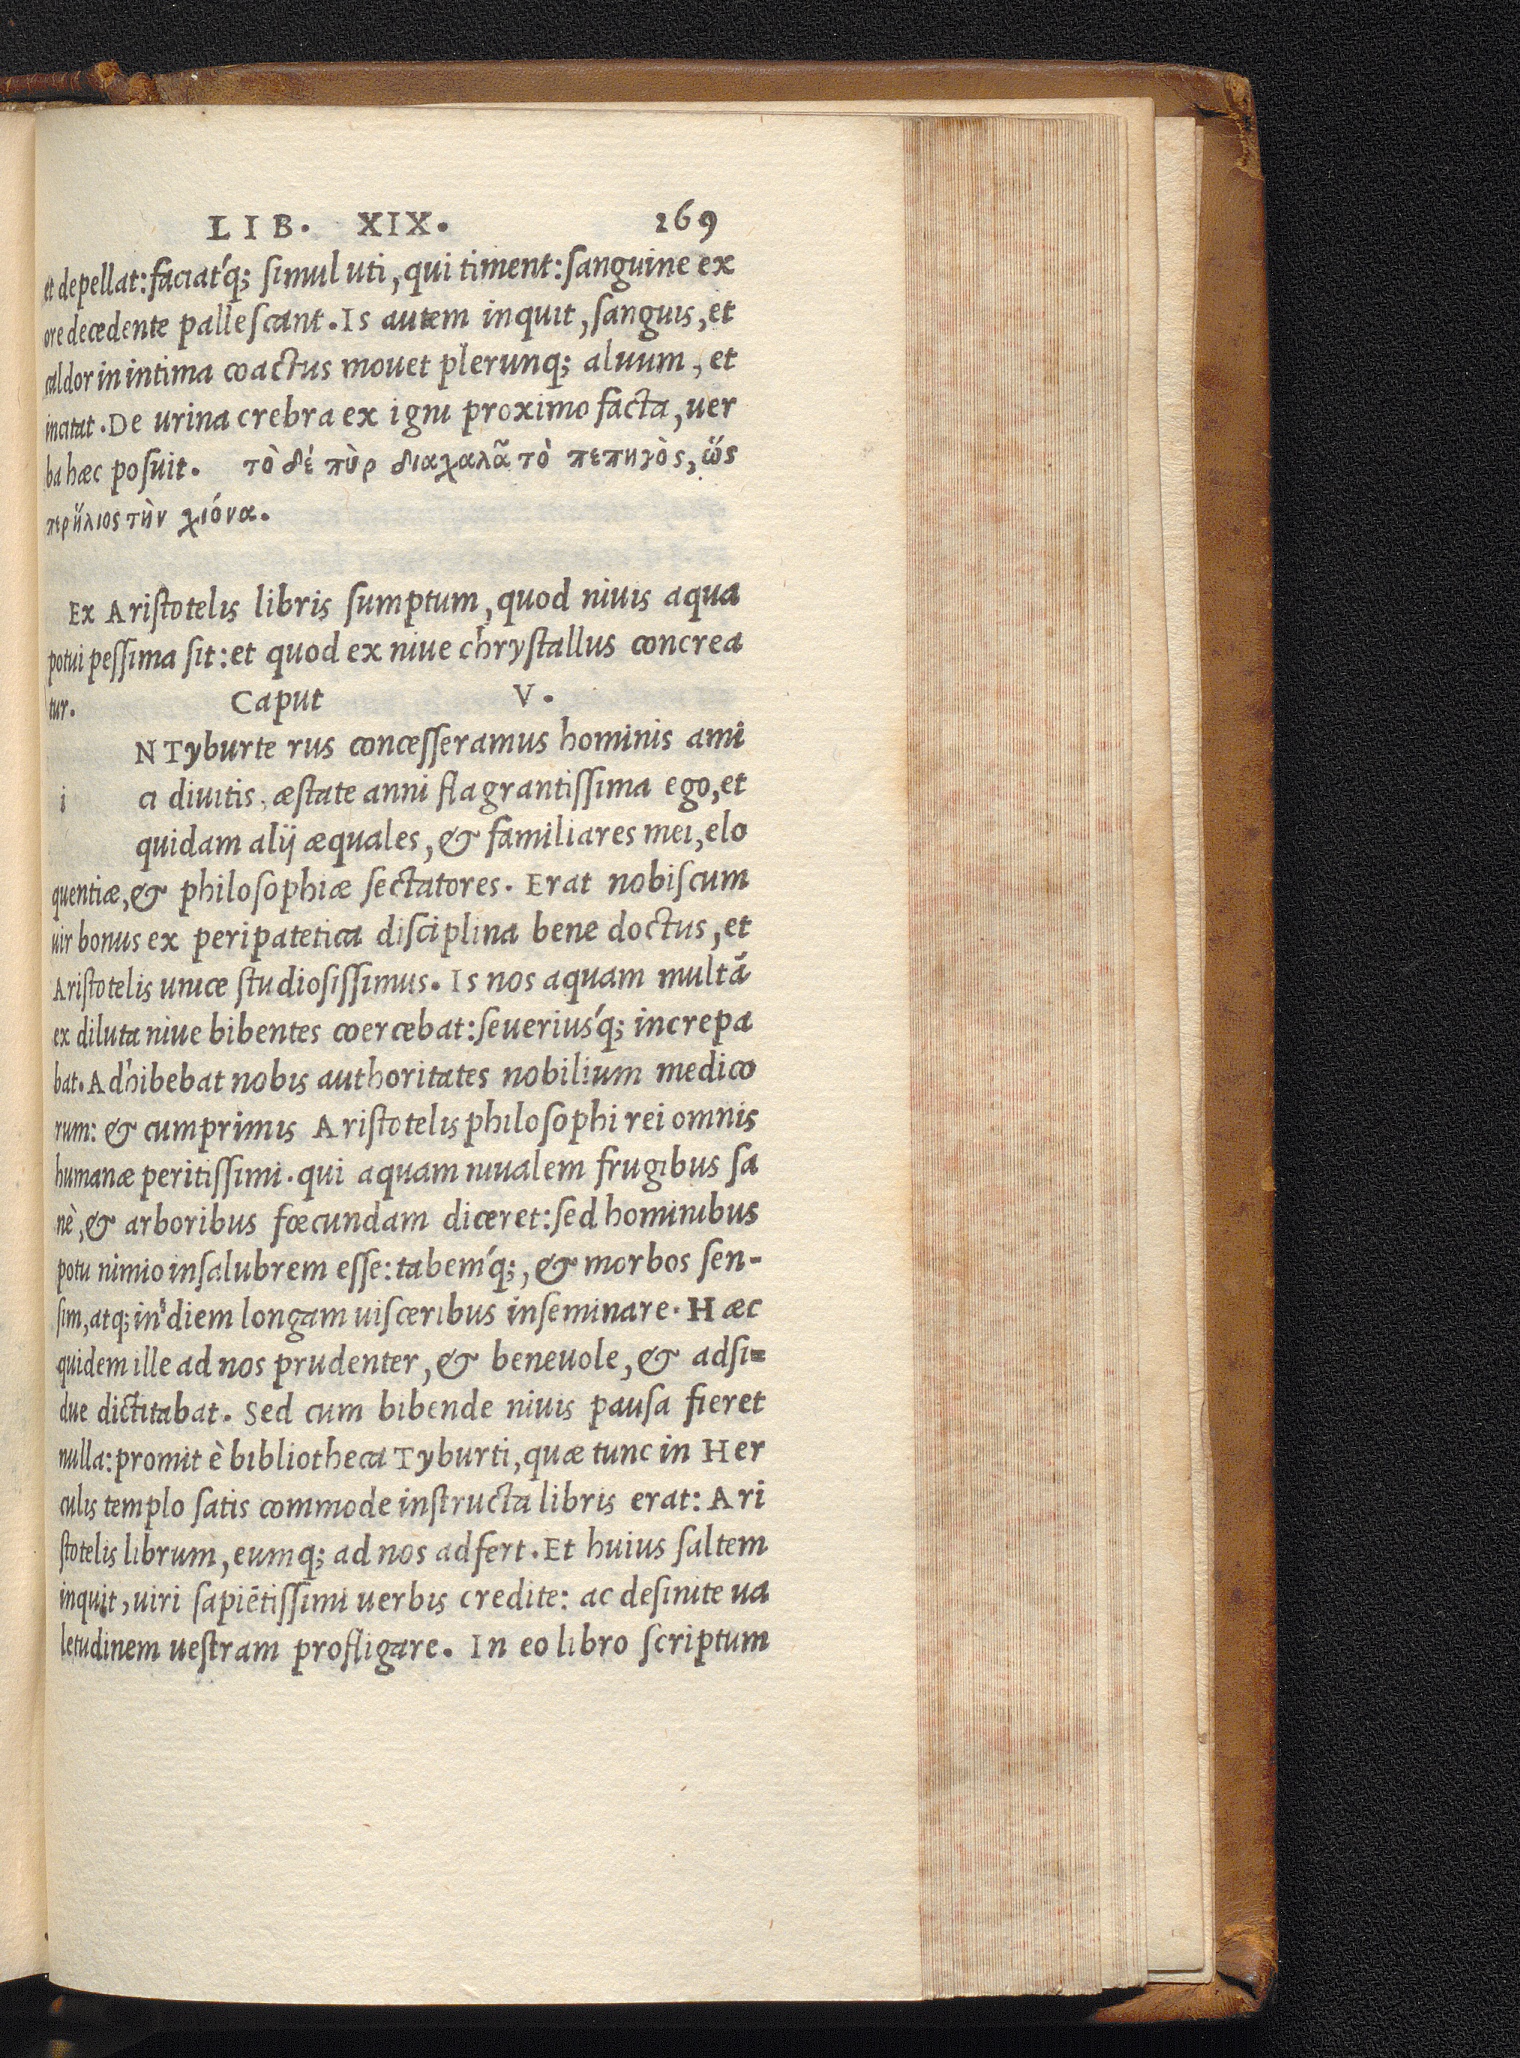 LIB. XIX. 269
et depellat: faciat'q; simul uti, qui timent: sanguine ex
ore decedente pallescant. Is autem inquit, sanguis, et
caldor in intima coactus mouet plerunq; aluum, et
incitat. De urina crebra ex igni proximo facta, uer
ba hæc posuit. τὸ δέ πὺρ διαχαλᾶ τὸ πεπηγὸς, ὥς
περ ἥλιος τὴν χιόνα.
Ex Aristotelis libris sumptum, quod niuis aqua
potui pessima sit: et quod ex niue chrystallus concrea
tur. Caput V.
N Tyburte rus concesseramus hominis ami
i ci diuitis, æstate anni flagrantissima ego, et
quidam alij æquales, & familiares mei, elo
quentiæ, & philosophiæ sectatores. Erat nobiscum
uir bonus ex peripatetica disciplina bene doctus, et
Aristotelis unice studiosissimus. Is nos aquam multā
ex diluta niue bibentes coercebat: seuerius'q; increpa
bat. Adhibebat nobis authoritates nobilium medico
rum: & cumprimis Aristotelis philosophi rei omnis
humanæ peritissimi. qui aquam niualem frugibus sa
nè, & arboribus fœcundam diceret: sed hominibus
potu nimio insalubrem esse: tabem'q;, & morbos sen-
sim, atq; in diem longam uisceribus inseminare. Hæc
quidem ille ad nos prudenter, & beneuole, & adsi=
due dictitabat. Sed cum bibende niuis pausa fieret
nulla: promit è bibliotheca Tyburti, quæ tunc in Her
culis templo satis commode instructa libris erat: Ari
stotelis librum, eumq; ad nos adfert. Et huius saltem
inquit, uiri sapiētissimi uerbis credite: ac desinite ua
letudinem uestram profligare. In eo libro scriptum